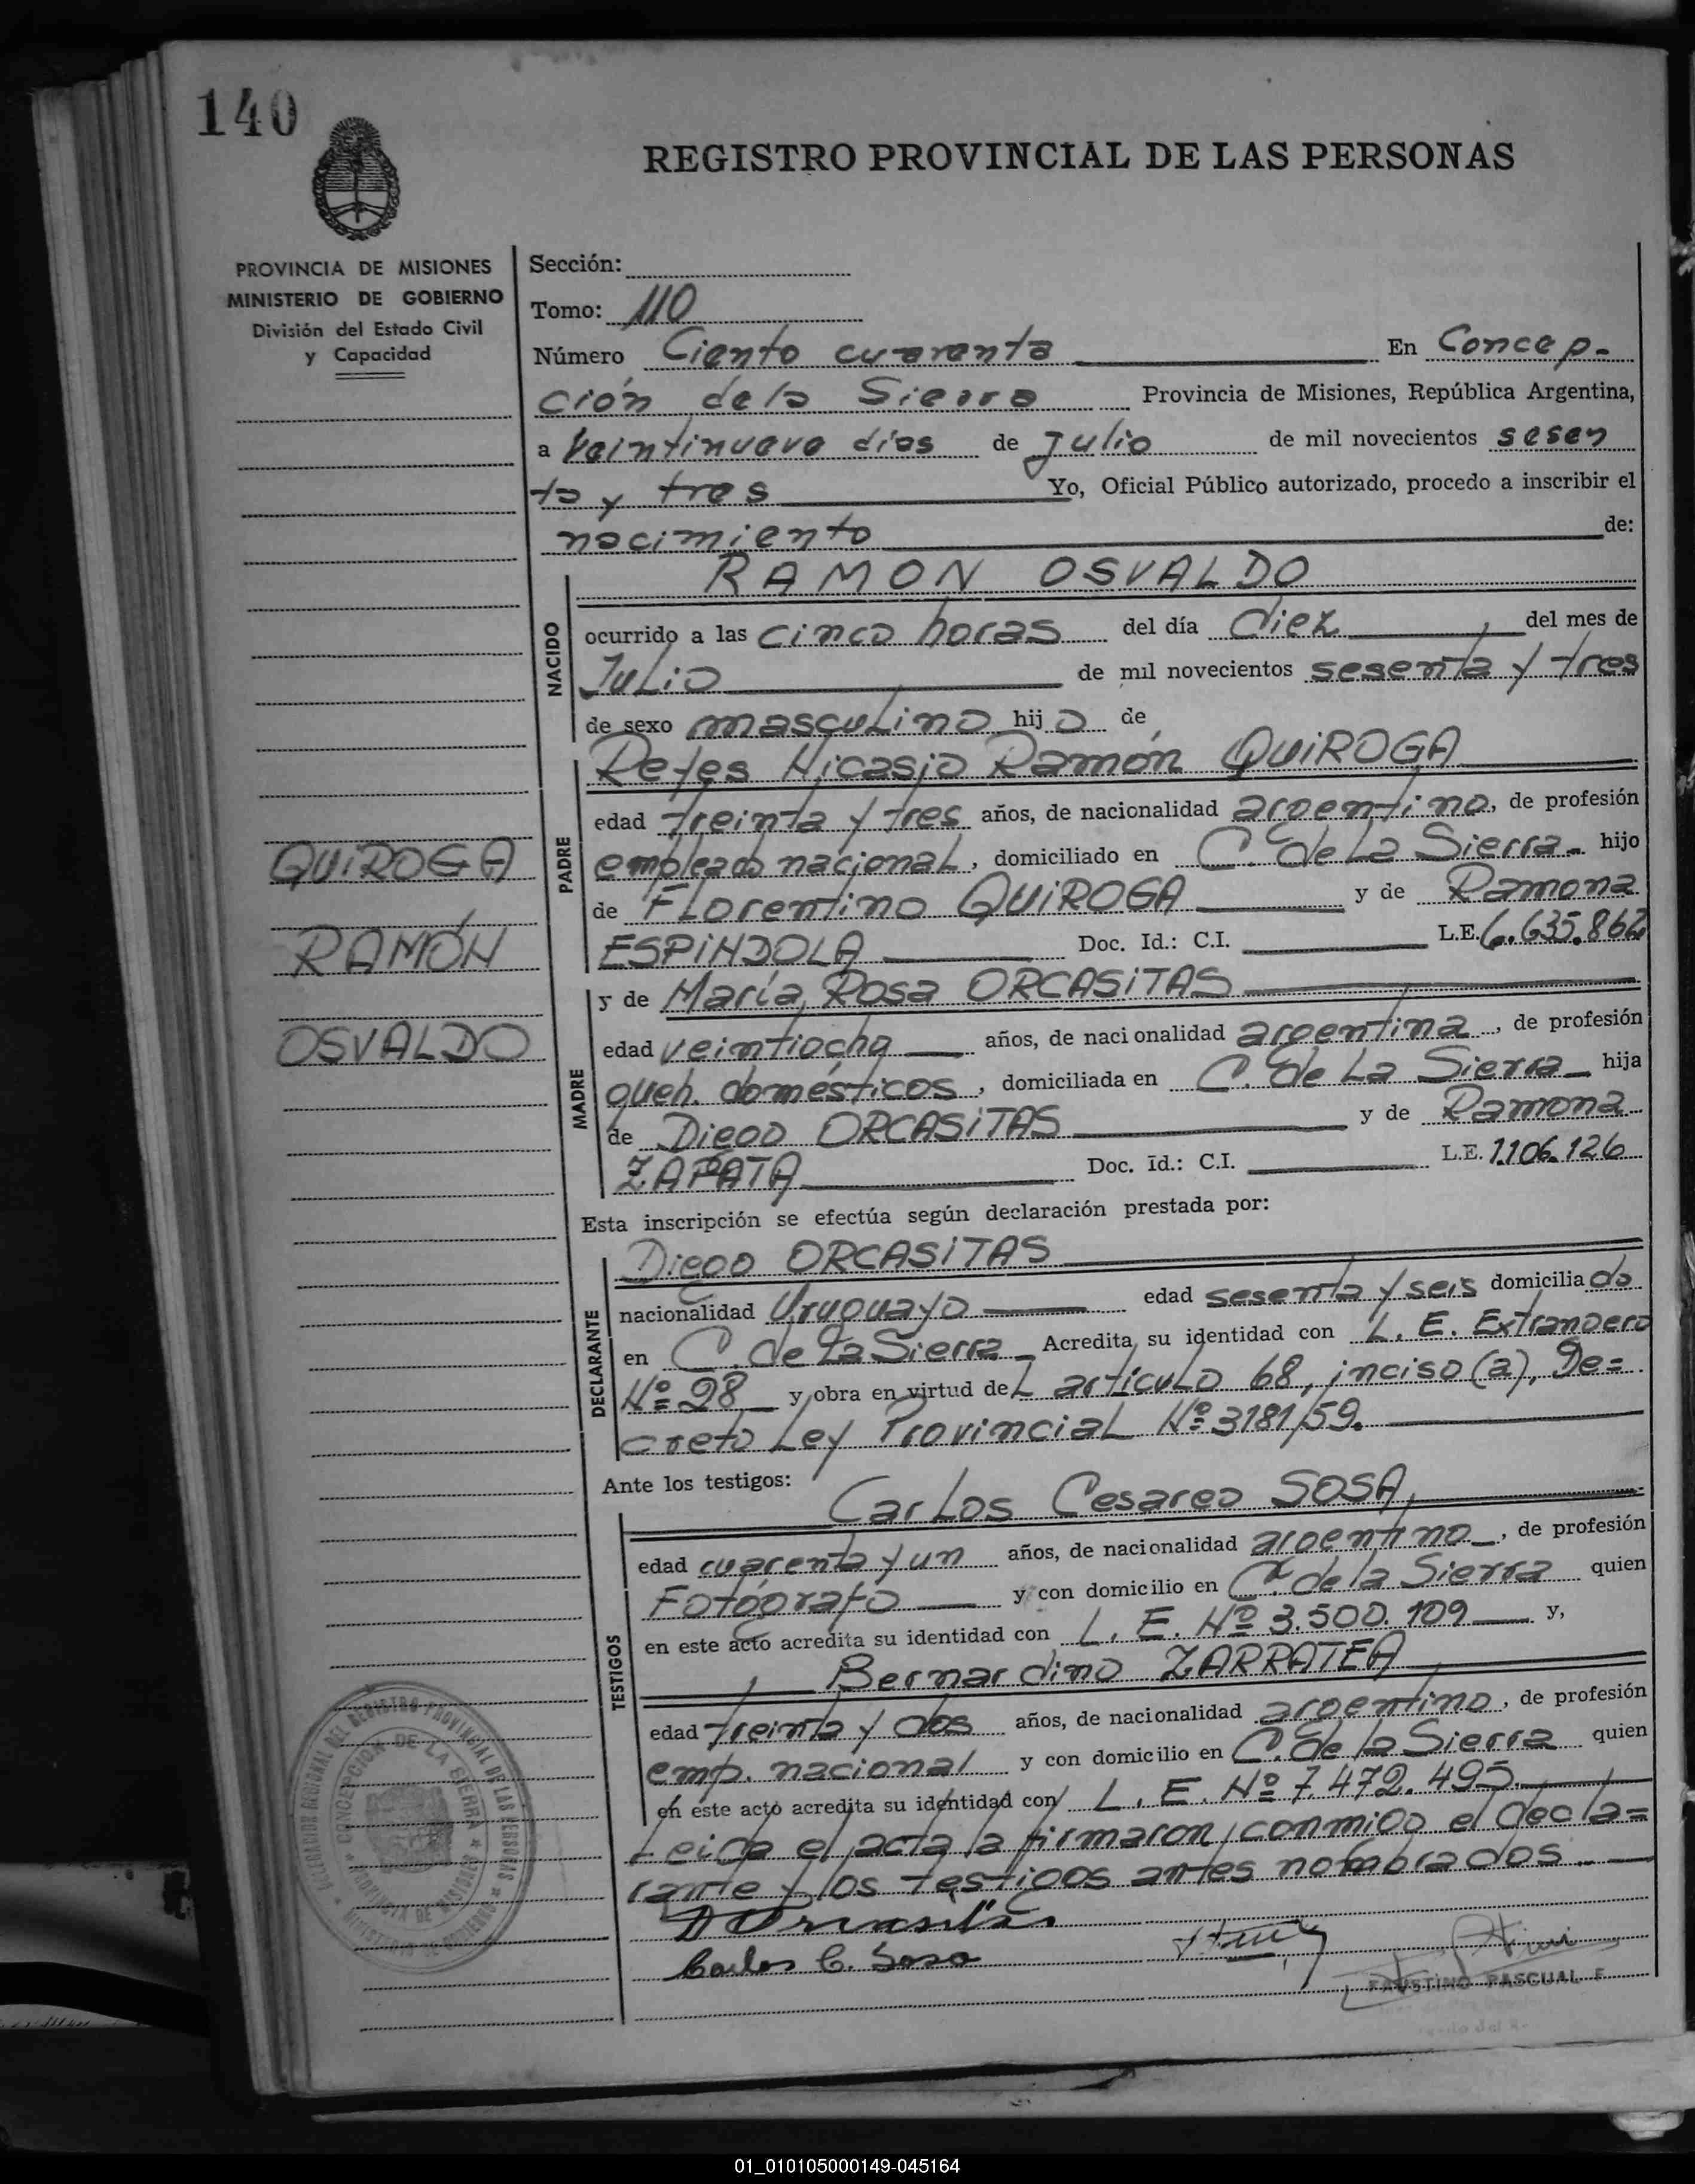 140
REGISTRO PROVINCIAL DE LAS PERSONAS
PROVINCIA DE MISIONES
MINISTERIO DE GOBIERNO
División del Estado Civil
y Capacidad
Sección:
Tomo: 110
Número Ciento cuarenta En Concep-
ción de la Sierra Provincia de Misiones, República Argentina,
a Veintinueve días de Julio de mil novecientos sesen
ta y tres Yo, Oficial Público autorizado, procedo a inscribir el
nacimiento de:
RAMON OSVALDO
NACIDO
ocurrido a las cinco horas del día diez del mes de
Julio de mil novecientos sesenta y tres
de sexo masculino hijo de
Reyes Nicasio Ramón QUIROGA
PADRE
edad treinta y tres años, de nacionalidad argentino, de profesión
empleado nacional, domiciliado en C. de La Sierra- hijo
de Florentino QUIROGA y de Ramona
ESPINDOLA Doc. Id.: C.I. L.E. 6.635.862
QUIROGA
RAMÓN
OSVALDO
y de María Rosa ORCASITAS
MADRE
edad veintiocho años, de nacionalidad argentina, de profesión
queh. domésticos, domiciliada en C. de La Sierra hija
de Diego ORCASITAS y de Ramona
ZAPATA Doc. Id.: C.I. L.E. 1.106.126
Esta inscripción se efectúa según declaración prestada por:
Diego ORCASITAS
DECLARANTE
nacionalidad Uruguayo edad sesenta y seis domiciliado
en C. de La Sierra Acredita su identidad con L. E. Extrangero
Nº 28 y obra en virtud del artículo 68, inciso (a), De=
creto Ley Provincial Nº 3181/59.
Ante los testigos:
Carlos Cesareo SOSA,
TESTIGOS
edad cuarenta y un años, de nacionalidad argentino, de profesión
Fotógrafo y con domicilio en C. de la Sierra quien
en este acto acredita su identidad con L. E. Nº 3.500.109 y,
Bernardino ZARRATEA
edad treinta y dos años, de nacionalidad argentino, de profesión
emp. nacional y con domicilio en C. de la Sierra quien
en este acto acredita su identidad con L. E. Nº 7.472.495.
Leida el acta la firmaron conmigo el decla=
rante y los testigos antes nombrados.
D Orcasitas
Carlos C. Sosa
FAUSTINO PASCUAL F
DELEGACION REGIONAL DEL REGISTRO PROVINCIAL DE LAS PERSONAS
CONCEPCION DE LA SIERRA
MINISTERIO DE GOBIERNO
01_010105000149-045164